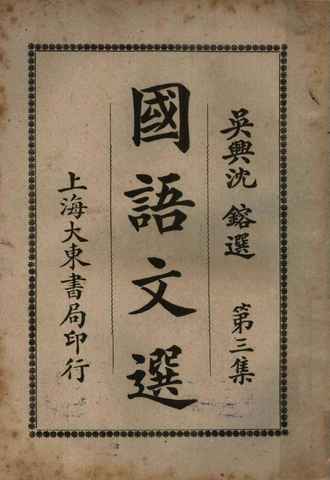 吳興沈 鎔選 第三集
國語文選
上海大東書局印行